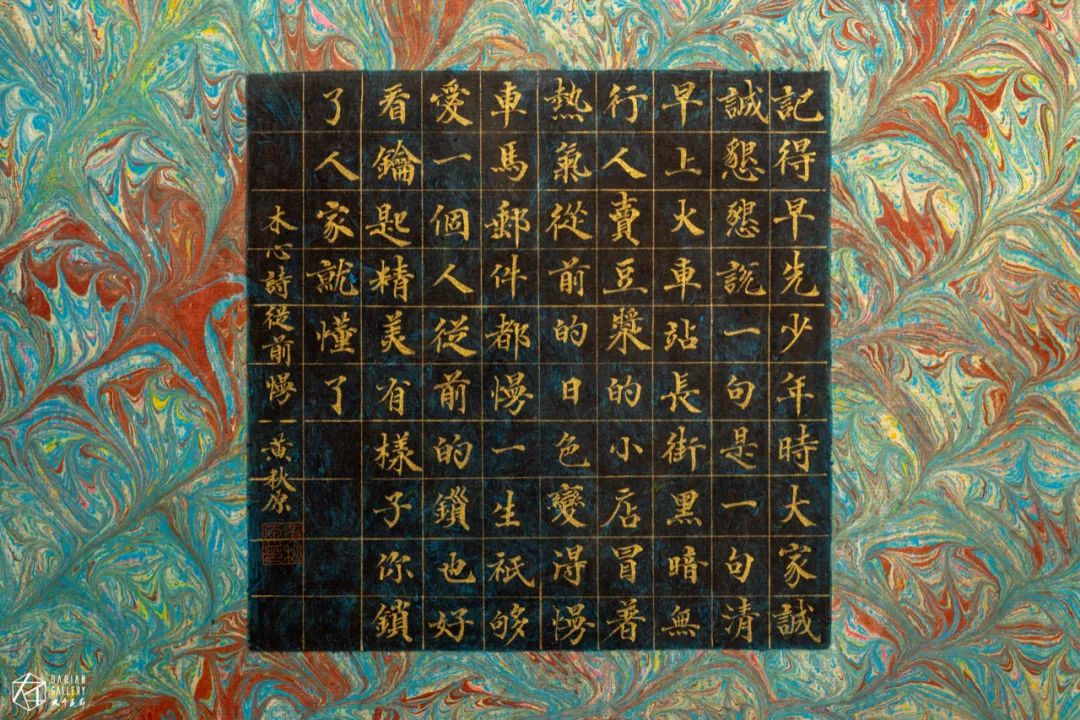 記得早先少年時大家誠
誠懇懇説一句是一句清
早上火車站長街黑暗無
行人賣豆漿的小店冒著
熱氣從前的日色變得慢
車馬郵件都慢一生祇够
愛一個人從前的鎖也好
看鑰匙精美有樣子你鎖
了人家就懂了
木心詩從前慢 黃秋原
DABIAN
GALLERY